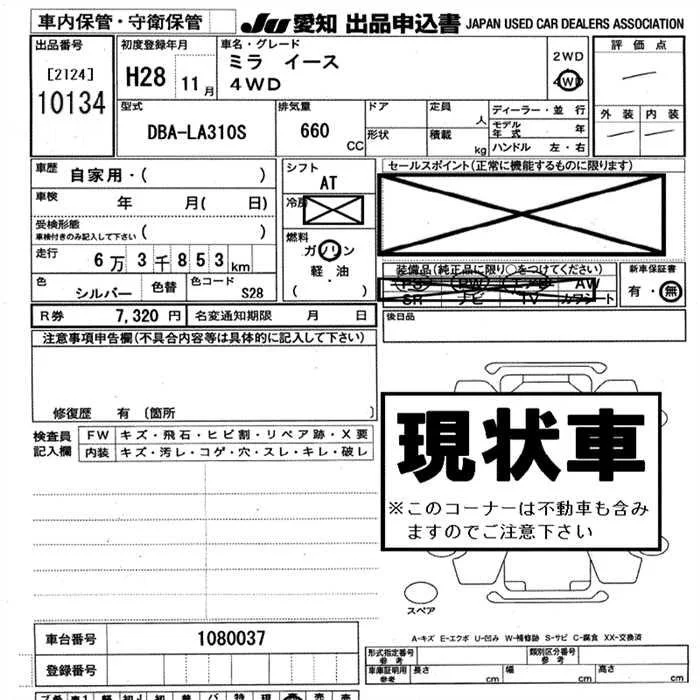 車内保管・守衛保管
JU 愛知 出品申込書 JAPAN USED CAR DEALERS ASSOCIATION
出品番号
[2124]
10134
初度登録年月
H28 11月
車名・グレード
ミラ イース
4WD
2WD
4WD
評価点
外装 内装
型式
DBA-LA310S
排気量
660
CC
ドア
形状
定員
人
積載
kg
ディーラー・並行
モデル年式 年
ハンドル 左・右
車歴
自家用・( )
車検
年 月( 日)
受検形態
車検付きのみ記入して下さい ( )
走行
6万3千853km
色
シルバー
色替
色コード
S28
シフト
AT
冷房
燃料
ガソリン
軽・油
・
( )
セールスポイント(正常に機能するものに限ります)
装備品(純正品に限り○をつけてください)
PS PW エアB AW
SR ナビ TV カワシート
新車保証書
有・無
R券 7,320 円
名変通知期限 月 日
後日品
注意事項申告欄(不具合内容等は具体的に記入して下さい)
修復歴 有 〔箇所 〕
検査員
記入欄
FW キズ・飛石・ヒビ割・リペア跡・X要
内装 キズ・汚レ・コゲ・穴・スレ・キレ・破レ
現状車
※このコーナーは不動車も含み
ますのでご注意下さい
スペア
A-キズ E-エクボ U-凹み W-補修跡 S-サビ C-腐食 XX-交換済
車台番号 1080037
登録番号
形式指定番号
参考
類別区分番号
参考
車庫証明用
参考
長さ cm
幅 cm
高さ cm